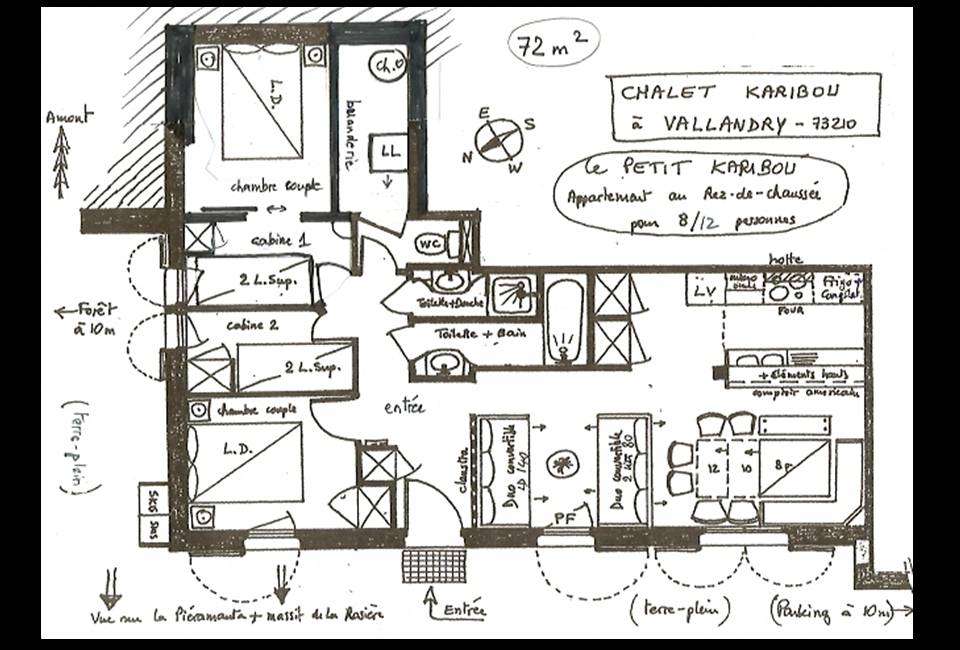 72 m²
CHALET KARIBOU
à VALLANDRY - 73210
Le PETIT KARIBOU
Appartement au Rez-de-chaussée
pour 8/12 personnes
E
S
N
W
Amont
L.D.
buanderie
ch.o
LL
chambre couple
cabine 1
WC
2 L.Sup.
Toilette+Douche
Toilette + Bain
hotte
LV
micro
Frigo+
Congélat
FOUR
+ éléments hauts
comptoir américain
Forêt
à 10m
cabine 2
2 L.Sup.
chambre couple
L.D.
entrée
(terre-plein)
SKIS
SKIS
claustra
Duo convertible
LD 140
Duo convertible
2 LITS 80
PF
12
10
8P
Entrée
Vue sur la Piéramanta + massif de la Rosière
(terre-plein)
(Parking à 10m)